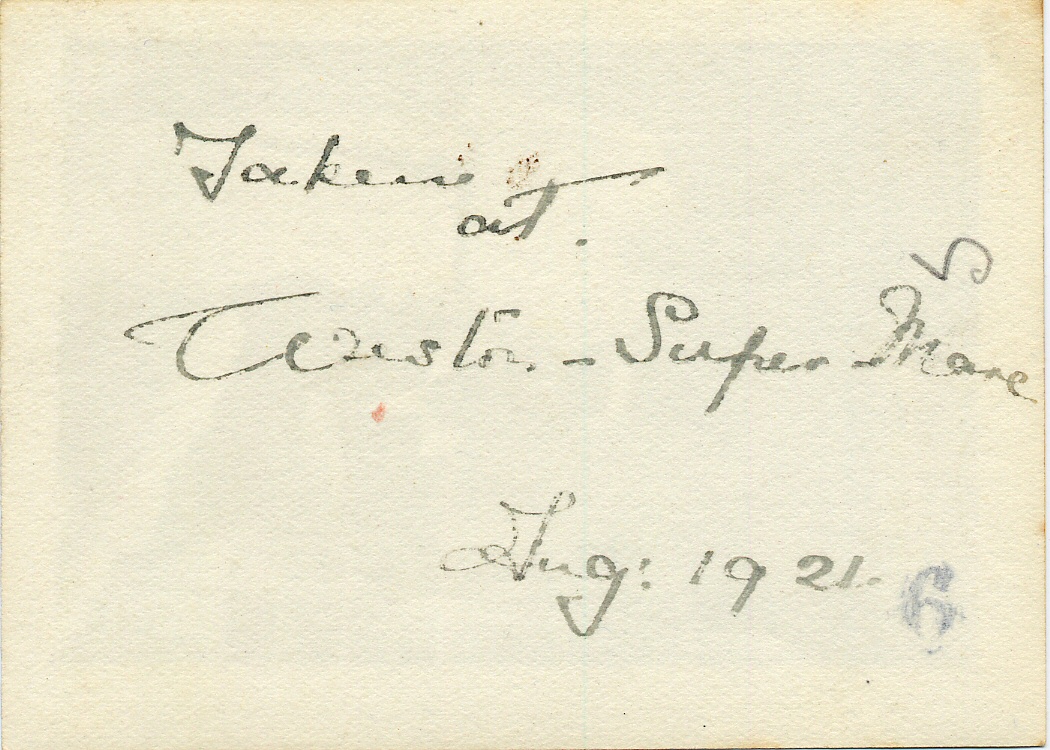 Taken
at.
Weston-Super-Mare
Aug: 1921.
6